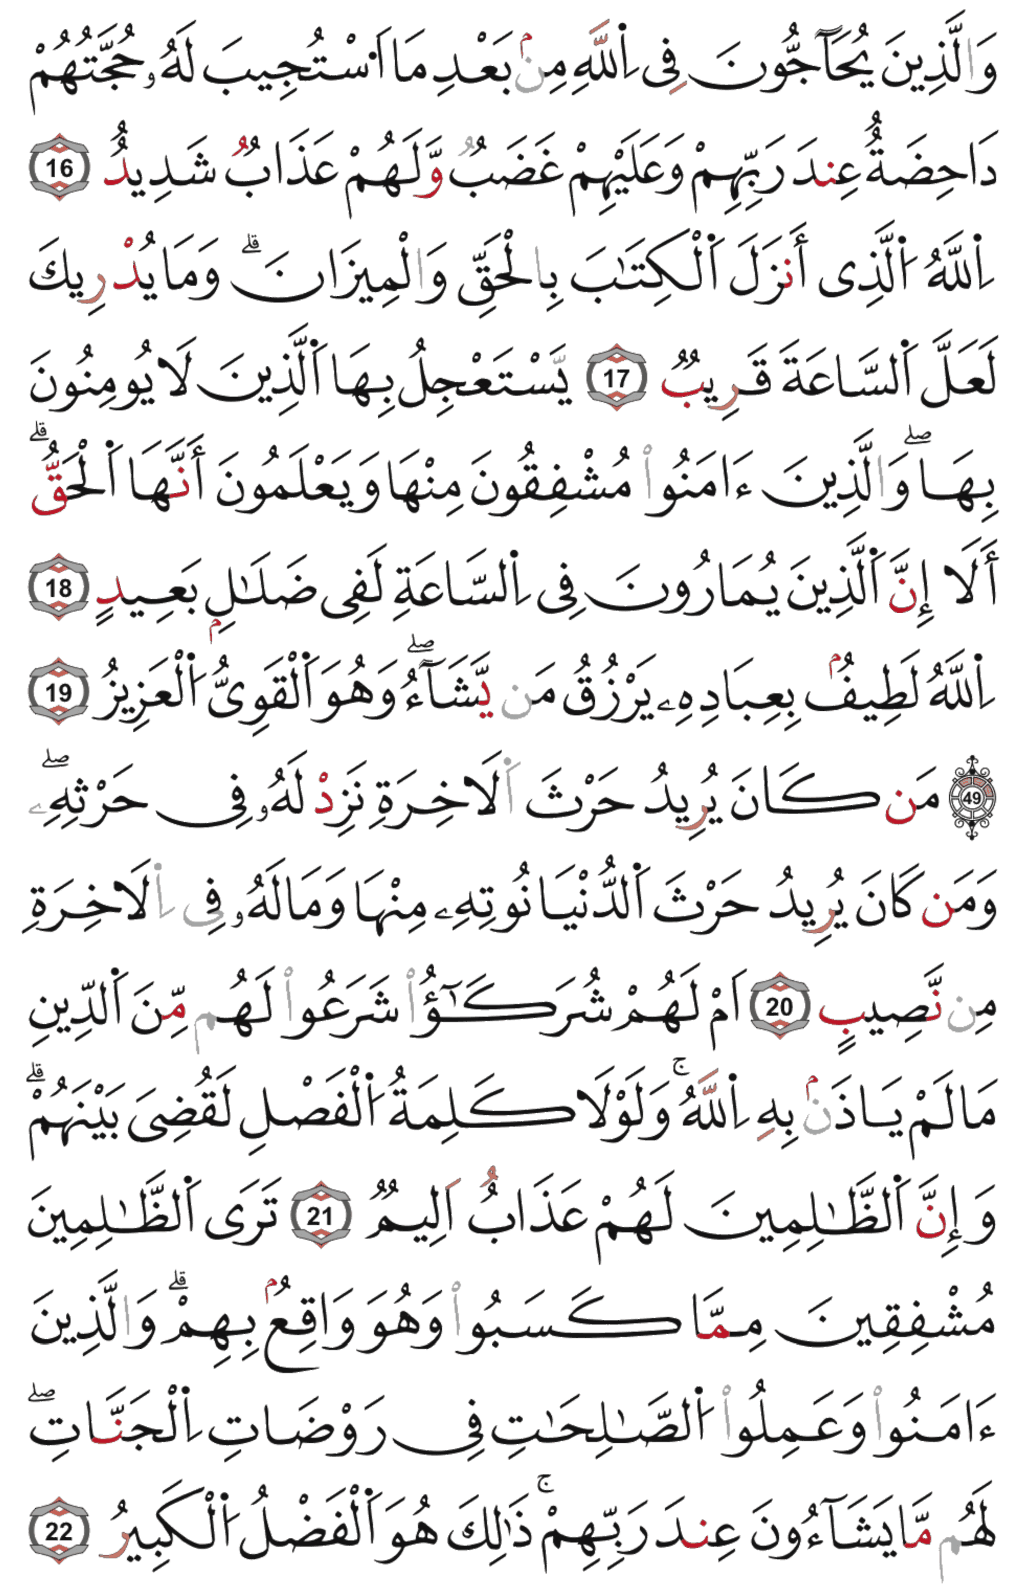 وَالَّذِينَ يُحَآجُّونَ فِي اِ۬للَّهِ مِنۢ بَعْدِ مَا اَ۟سْتُجِيبَ لَهُۥ حُجَّتُهُمْ
دَاحِضَةٌ عِندَ رَبِّهِمْ وَعَلَيْهِمْ غَضَبٌ وَلَهُمْ عَذَابٌ شَدِيدٌ 16
اِ۬للَّهُ اُ۬لَّذِى أَنزَلَ اَ۬لْكِتَٰبَ بِالْحَقِّ وَالْمِيزَانَ ۗ وَمَا يُدْرِيكَ
لَعَلَّ اَ۬لسَّاعَةَ قَرِيبٌ 17 يَسْتَعْجِلُ بِهَا اَ۬لَّذِينَ لَا يُومِنُونَ
بِهَا ۖ وَالَّذِينَ ءَامَنُوا۟ مُشْفِقُونَ مِنْهَا وَيَعْلَمُونَ أَنَّهَا اَ۬لْحَقُّ ۗ
أَلَا إِنَّ اَ۬لَّذِينَ يُمَارُونَ فِى اِ۬لسَّاعَةِ لَفِى ضَلَٰلِۢ بَعِيدٍ 18
اِ۬للَّهُ لَطِيفُۢ بِعِبَادِهِۦ يَرْزُقُ مَن يَّشَآءُ ۖ وَهُوَ اَ۬لْقَوِىُّ اُ۬لْعَزِيزُ 19
49 مَن كَانَ يُرِيدُ حَرْثَ اَ۬لَاخِرَةِ نَزِدْ لَهُۥ فِى حَرْثِهِۦ ۖ
وَمَن كَانَ يُرِيدُ حَرْثَ اَ۬لدُّنْيَا نُوتِهِۦ مِنْهَا وَمَا لَهُۥ فِى اِ۬لَاخِرَةِ
مِن نَّصِيبٍ 20 اَمْ لَهُمْ شُرَكَٰٓؤُا۟ شَرَعُوا۟ لَهُم مِّنَ اَ۬لدِّينِ
مَا لَمْ يَاذَنۢ بِهِ اِ۬للَّهُ ۚ وَلَوْلَا كَلِمَةُ اُ۬لْفَصْلِ لَقُضِىَ بَيْنَهُمْ ۗ
وَإِنَّ اَ۬لظَّٰلِمِينَ لَهُمْ عَذَابٌ اَلِيمٌ 21 تَرَى اَ۬لظَّٰلِمِينَ
مُشْفِقِينَ مِمَّا كَسَبُوا۟ وَهُوَ وَاقِعُۢ بِهِمْ ۗ وَالَّذِينَ
ءَامَنُوا۟ وَعَمِلُوا۟ اُ۬لصَّٰلِحَٰتِ فِى رَوْضَاتِ اِ۬لْجَنَّاتِ ۖ
لَهُم مَّا يَشَآءُونَ عِندَ رَبِّهِمْ ۚ ذَٰلِكَ هُوَ اَ۬لْفَضْلُ اُ۬لْكَبِيرُ 22